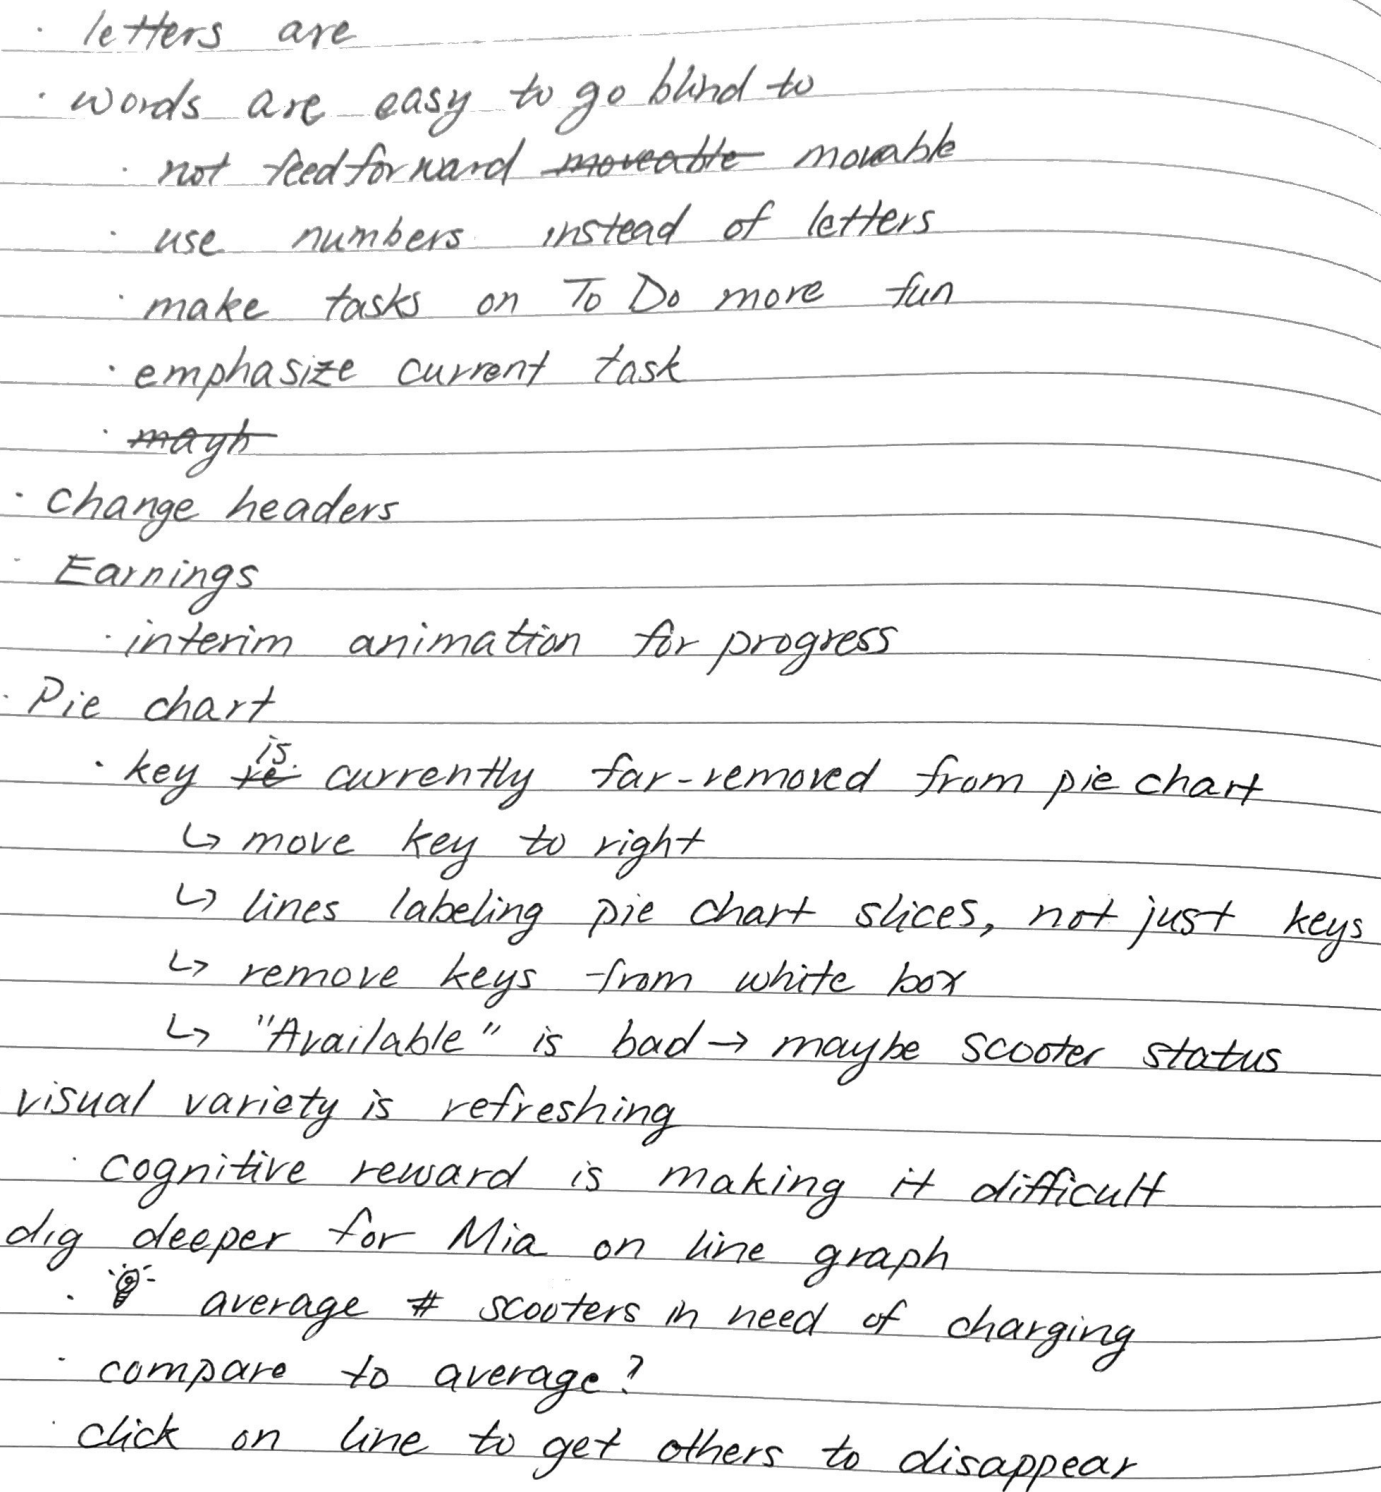 · letters are
· words are easy to go blind to
· not feedforward ~~moveable~~ movable
· use numbers instead of letters
· make tasks on To Do more fun
· emphasize current task
· ~~mayb~~
· change headers
· Earnings
· interim animation for progress
· Pie chart
· key ~~re~~ is currently far-removed from pie chart
↳ move key to right
↳ lines labeling pie chart slices, not just keys
↳ remove keys from white box
↳ "Available" is bad → maybe scooter status
visual variety is refreshing
· cognitive reward is making it difficult
dig deeper for Mia on line graph
· 💡 average # scooters in need of charging
· compare to average?
· click on line to get others to disappear